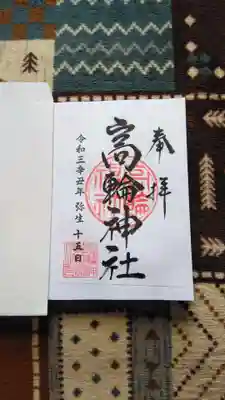 奉拝
高輪神社
令和三辛丑年 弥生 十五日